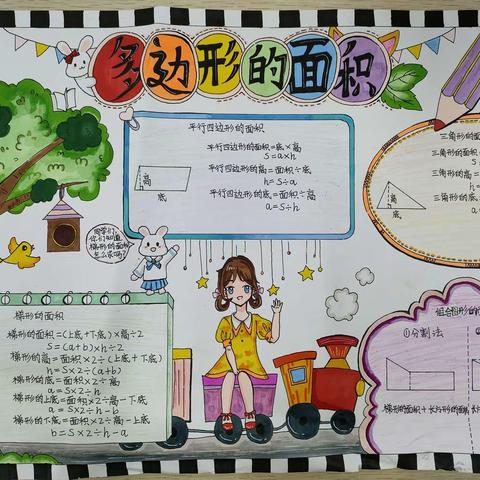 多边形的面积
平行四边形的面积
平行四边形的面积=底×高
S=a×h
平行四边形的高=面积÷底
h=S÷a
平行四边形的底=面积÷高
a=S÷h
高
底
三角形的面积
三角形的面积=
S=
三角形的高=
h=
三角形的底
a=
高
底
同学们,
你们知道
梯形的面积
怎么求吗?
梯形的面积
梯形的面积=(上底+下底)×高÷2
S=(a+b)×h÷2
梯形的高=面积×2÷(上底+下底)
h=S×2÷(a+b)
梯形的底=面积×2÷高
a=S×2÷h
梯形的上底=面积×2÷高-下底
a=S×2÷h-b
梯形的下底=面积×2÷高-上底
b=S×2÷h-a
组合图形的
①分割法
梯形的面积+长方形的面积